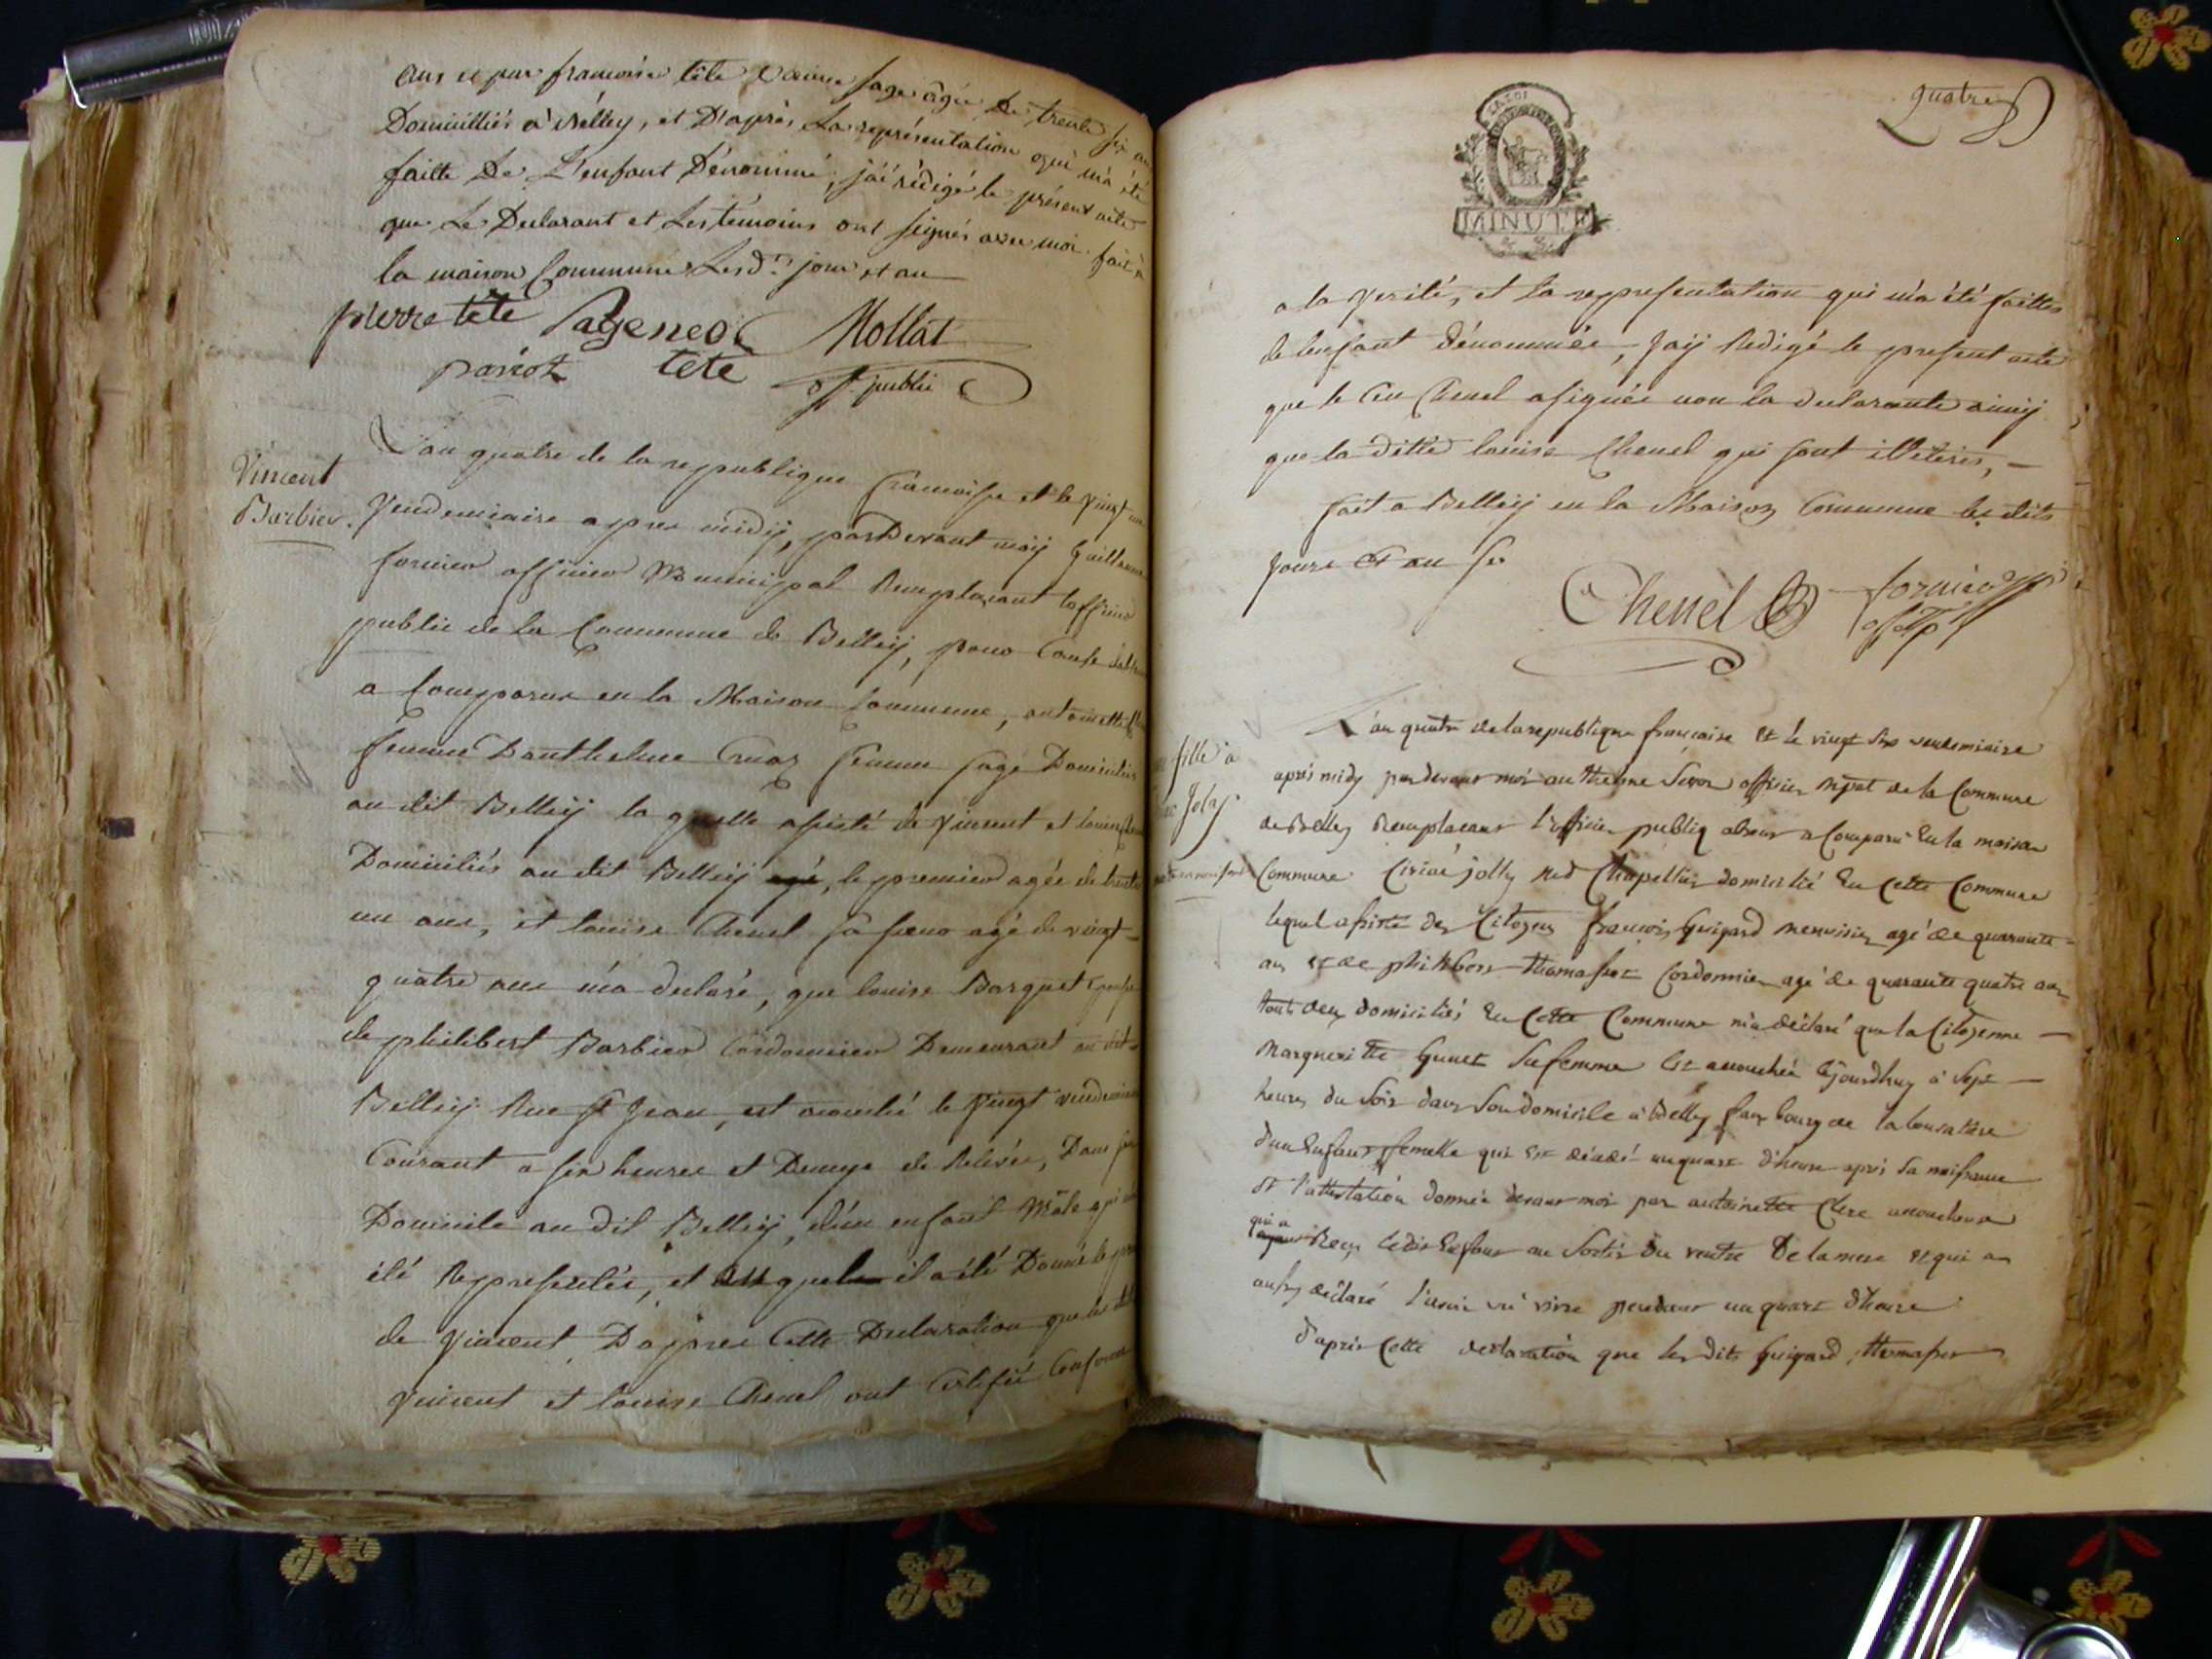 ans et par francoise tête sage agée de trente six
Domicilliés à Belley, et D'après La représentation qui m'a été
faitte De L'enfant Dénommé, j'ai rédigé le présent acte
que Le Déclarant et Les témoins ont signés avec moi. fait à
la maison Commune Lesd.ts jour et an
pierre tête Sageneo Mollat
tete off. public
Vincent
Barbier.
L'an quatre de la republique francoise et le vingt un
Vendemiaire apres midÿ, parDevant moÿ Guillaume
fornier officier Municipal Remplaçant l'officier
public de la Commune de Belleÿ, pour Cause
a Comparue en la Maison Commune, antoinette
femme Danthelme Cruaz femme sage Domiciliée
au dit Belleÿ la quelle assisté de Vincent et Louise
Domiciliés au dit Belleÿ, le premier agée de trente
un ans, et Louise Chenel sa sœur agé de vingt
quatre ans m'a declaré, que louise Barquet
de philibert Barbier Cordonnier Demeurant au dit
Belleÿ Rue St Jean, est acouché le Vingt vendemiaire
Courant a six heures et Demye de Relevée, Dans son
Domicile au dit Belleÿ, d'un enfant Mâle qui m'a
été Representée, et auquel il a été Donné le
de Vincent D'apres Cette Declaration que les dits
Vincent et louise Chenel ont Certifié Conforme
quatre
LA LOI
MINUTE
a la Verité, et la representation qui m'a été faitte
de lenfant dénommée, Jaÿ Redigé le present acte
que le Cen Chenel a signée non la declarante ainÿ
que la ditte louise Chenel qui sont illeteres,
fait a Belleÿ en la Maison Commune les dits
Jours et an
Chenel fornier off
fille à
Joly
L'an quatre de la republique francaise et le vingt six vendemiaire
après midy par devant moi anthelme officier mpal de la Commune
de Belley Remplacant l'officier publiq absent a Comparu En la maison
Commune jolly Chapellier domicilié En Cette Commune
lequel assisté des Citoyens françois Guigard menuisier agé de quarante
ans et de philibert thomasset Cordonnier agé de quarante quatre ans
touts deux domiciliés En Cette Commune m'a déclaré que la Citoyenne
Margueritte sa femme Est acouchée aujourdhuy à sept
heures du soir dans son domicile à Belley faux bourg de
d'un Enfant femelle qui est décédé un quart d'heure après sa naissance
et l'attestation donnée devant moi par antoinette Clerc acoucheuse
qui a Reçu ledit Enfant au sortir du ventre De la mere et qui a
aussy déclaré l'avoir vu vivre pendant un quart dheure
d'après Cette declaration que les dits Guigard, thomasset